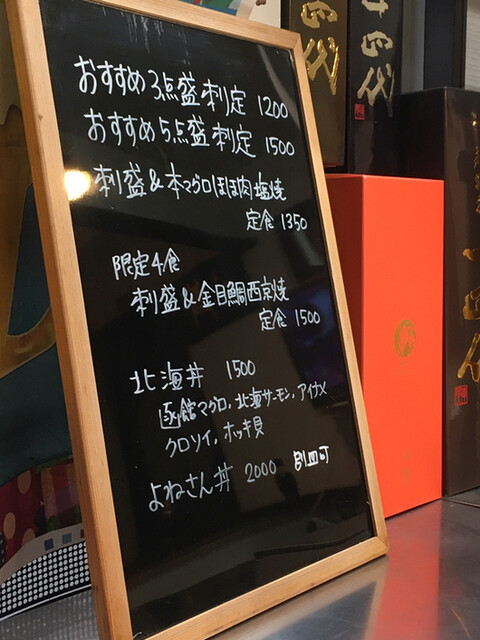 おすすめ3点盛刺定 1200
おすすめ5点盛刺定 1500
刺盛&本マグロほほ肉塩焼
定食 1350
限定4食
刺盛&金目鯛西京焼
定食 1500
北海丼 1500
函館マグロ,北海サーモン,アイナメ
クロソイ,ホッキ貝
よねさん丼 2000 別皿可
十四代
四代